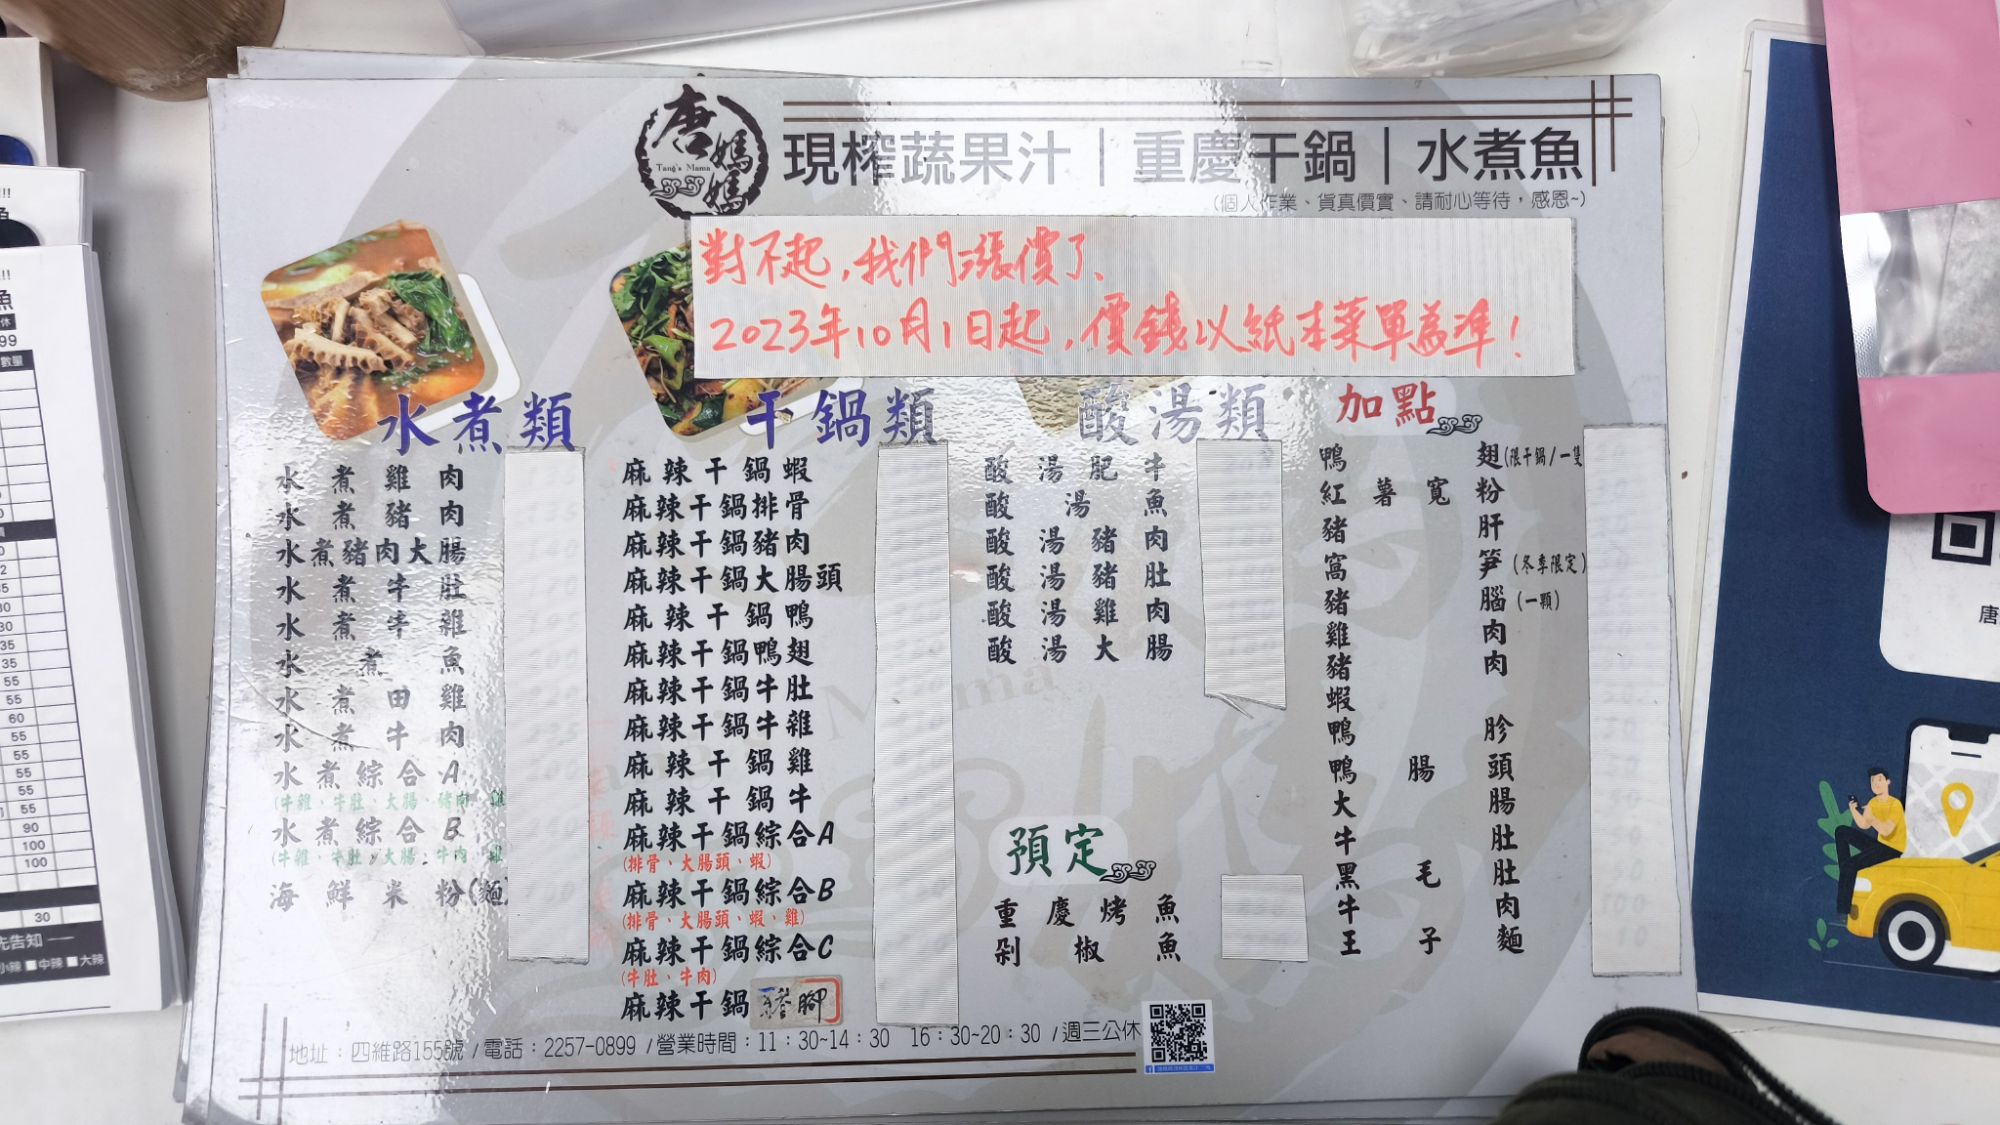 唐媽媽
Tang's Mama
現榨蔬果汁｜重慶干鍋｜水煮魚
(個人作業、貨真價實、請耐心等待，感恩~)
對不起,我們漲價了、
2023年10月1日起,價錢以紙本菜單為準!
水煮類
水煮雞肉
水煮豬肉
水煮豬肉大腸
水煮牛肚
水煮牛雜
水煮魚
水煮田雞
水煮牛肉
水煮綜合A
(牛雜、牛肚、大腸、豬肉、雞
水煮綜合B
(牛雜、牛肚、大腸、牛肉、雞
海鮮米粉(麵)
干鍋類
麻辣干鍋蝦
麻辣干鍋排骨
麻辣干鍋豬肉
麻辣干鍋大腸頭
麻辣干鍋鴨
麻辣干鍋鴨翅
麻辣干鍋牛肚
麻辣干鍋牛雜
麻辣干鍋雞
麻辣干鍋牛
麻辣干鍋綜合A
(排骨、大腸頭、蝦)
麻辣干鍋綜合B
(排骨、大腸頭、蝦、雞)
麻辣干鍋綜合C
(牛肚、牛肉)
麻辣干鍋豬腳
酸湯類
酸湯肥牛
酸湯魚
酸湯豬肉
酸湯豬肚
酸湯雞肉
酸湯大腸
預定
重慶烤魚
剁椒魚
加點
鴨翅(限干鍋/一隻
紅薯寬粉
豬肝
窩筍(冬季限定)
豬腦(一顆)
雞肉
豬肉
蝦
鴨胗
鴨腸頭
大腸
牛肚
黑毛肚
牛肉
王子麵
地址：四維路155號/電話：2257-0899/營業時間：11：30~14：30 16：30~20：30/週三公休
!!!
魚
!!!
魚
休
99
數量
35
30
35
35
55
55
60
55
55
55
55
55
90
100
100
30
先告知
小辣■中辣■大辣
唐